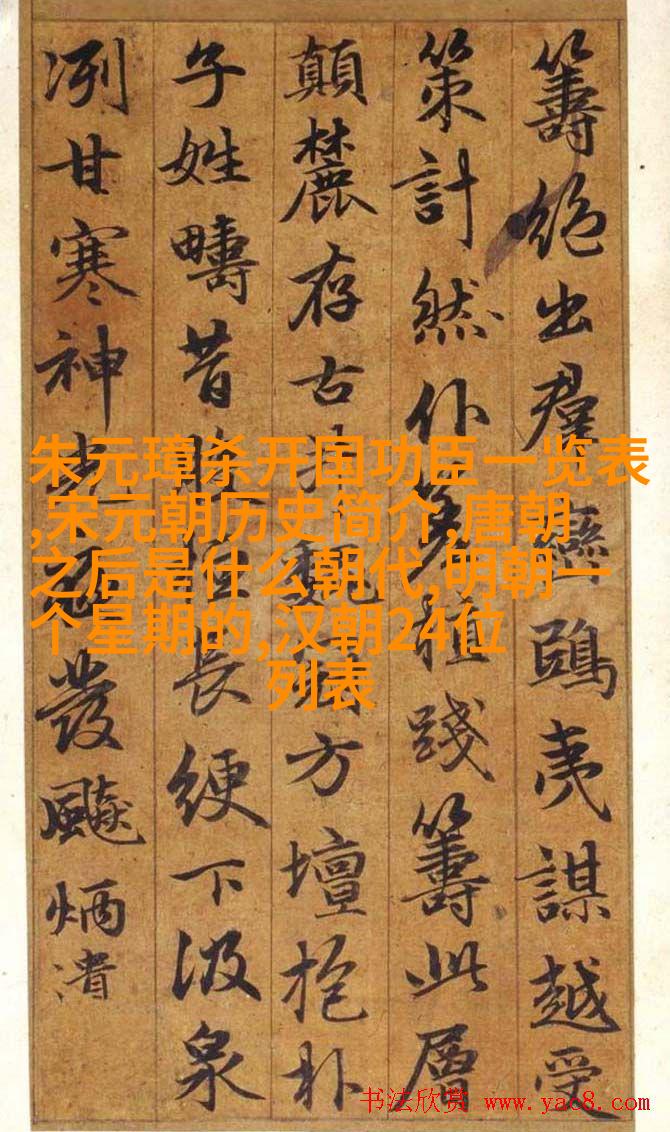 籌絕出群鴟夷謀越受
策計然仆踐籌此層
顛麓存古方壇抱朴
子姓疇昔長綆下汲泉
冽甘寒神發飈炳
朱元璋杀开国功臣一览表
,宋元朝历史简介,唐朝
之后是什么朝代,明朝一
个星期的,汉朝24位
列表
书法欣赏 www.yac8.com